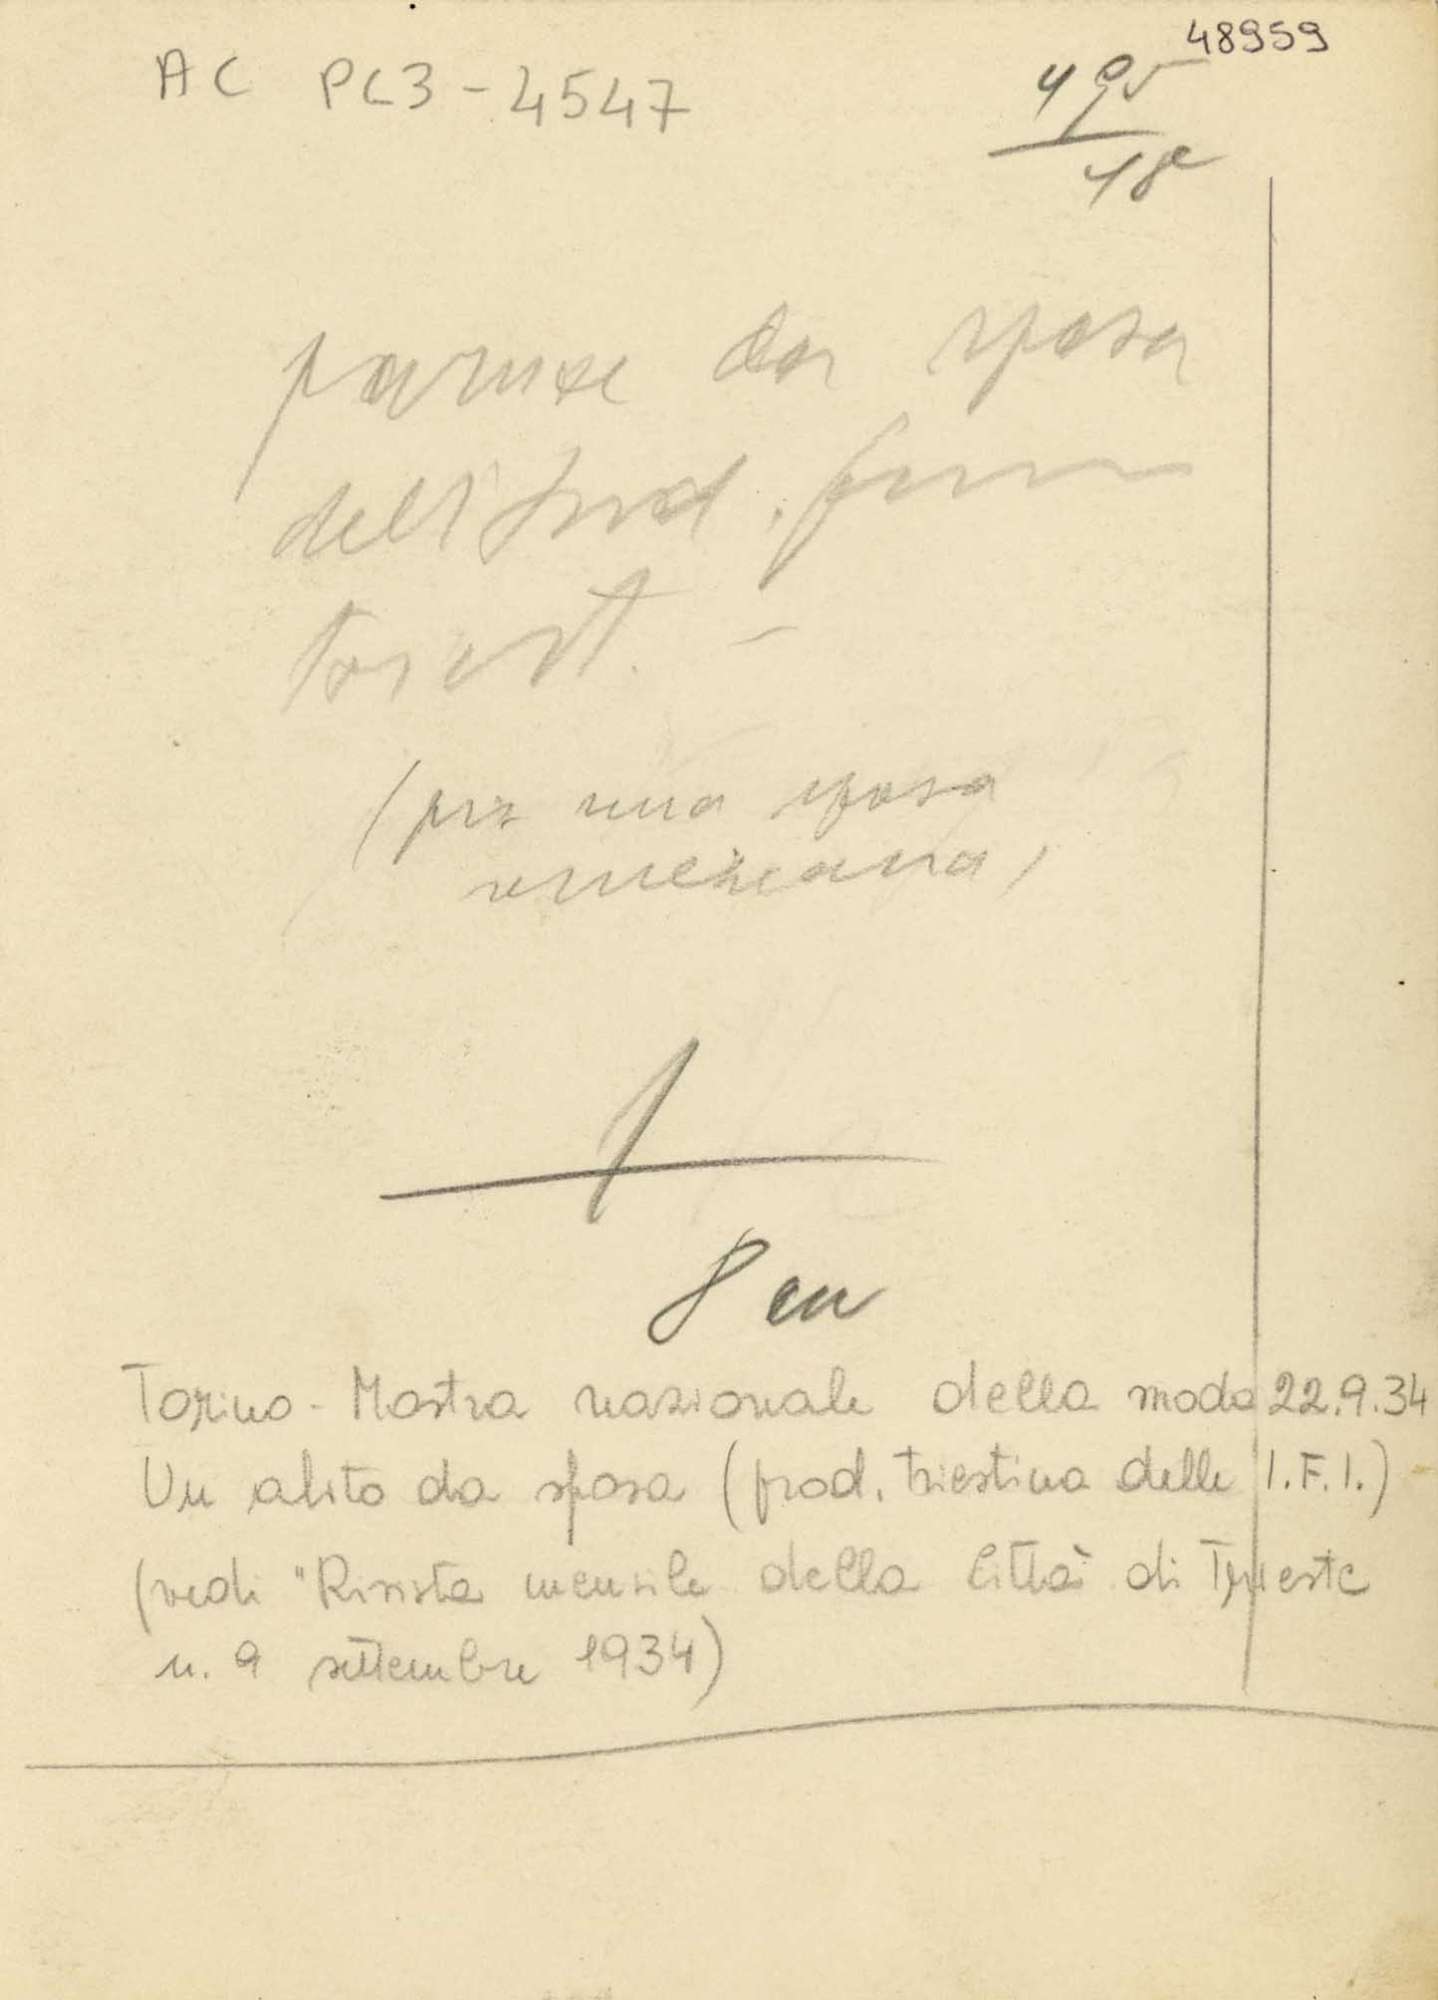 48959
AC PC3-4547
da sposa
dell'Ind. femm
triest. -
(per una sposa
americana)
8 cm
Torino - Mostra nazionale della moda 22.9.34
Un abito da sposa (prod. triestina delle I.F.I.)
(vedi "Rivista mensile della Città di Trieste
n. 9 settembre 1934)